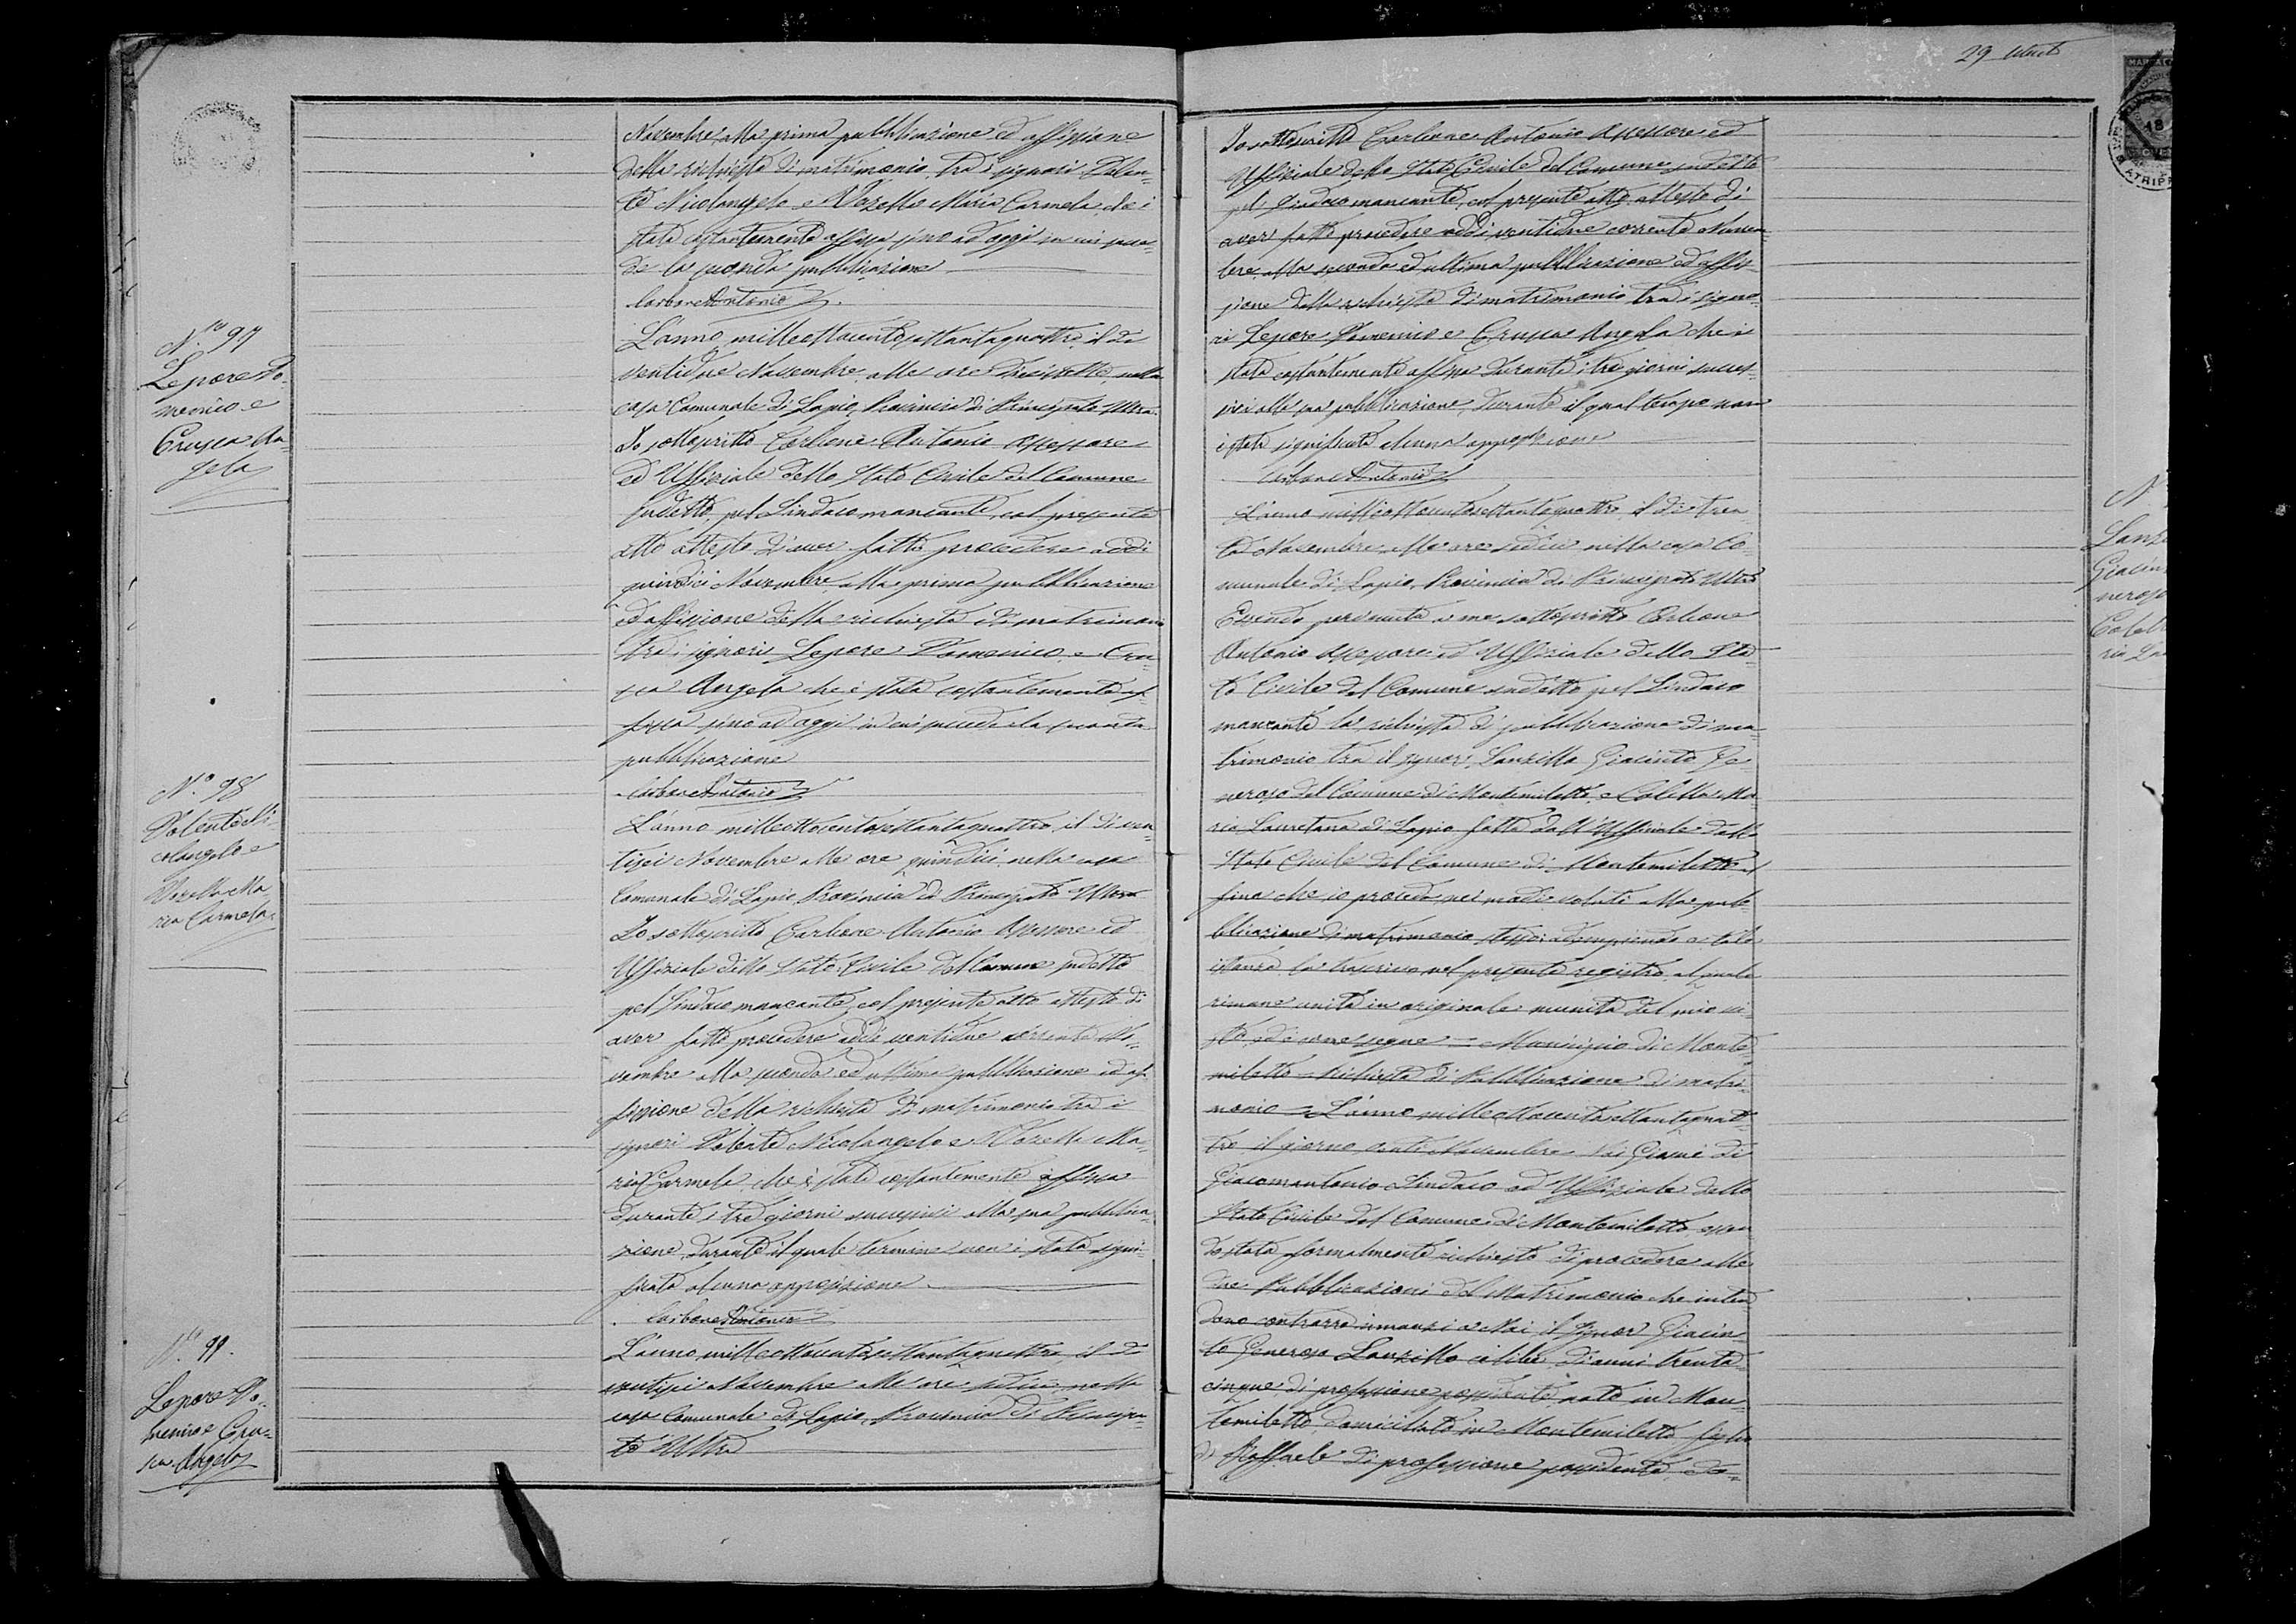 N.ro 97
Lepore Do-
menico e
Crusca An-
gela
N.o 98
Valente Ni-
colangelo e
Vozella Ma
ria Carmela
N.o 99.
Lepore Do-
menico e Cru-
sca Angela
Novembre alla prima pubblicazione ed affissione
della richiesta di matrimonio tra i signori Valen-
te Nicolangelo e Vozella Maria Carmela che è
stata costantemente affissa sino ad oggi in cui succe-
de la seconda pubblicazione
Carbone Antonio
L'anno milleottocentosettantaquattro il dì
ventidue Novembre alle ore diciassette nella
casa Comunale di Lapio, Provincia di Principato Ultra.
Io sottoscritto Carbone Antonio Assessore
ed Uffiziale dello Stato Civile del Comune
sudetto, pel Sindaco mancante, col presente
atto attesto di aver fatto procedere addì
quindici Novembre alla prima pubblicazione
ed affissione della richiesta di matrimonio
tra i signori Lepore Domenico e Cru-
sca Angela che è stata costantemente af-
fissa sino ad oggi in cui succede la seconda
pubblicazione
Carbone Antonio
L'anno milleottocentosettantaquattro il dì ven-
tisei Novembre alle ore quindici nella casa
Comunale di Lapio, Provincia di Principato Ultra
Io sottoscritto Carbone Antonio Assessore ed
Uffiziale dello Stato Civile del Comune sudetto
pel Sindaco mancante, col presente atto attesto di
aver fatto procedere addì ventidue corrente No-
vembre alla seconda ed ultima pubblicazione ed af-
fissione della richiesta di matrimonio tra i
signori Valente Nicolangelo e Vozella Ma-
ria Carmela, che è stata costantemente affissa
durante i tre giorni successivi alla sua pubblica-
zione, durante il quale termine non è stata signi-
ficata alcuna opposizione
Carbone Antonio
L'anno milleottocentosettantaquattro, il dì
ventisei Novembre alle ore sedici nella
casa Comunale di Lapio, Provincia di Principa-
to Ultra
29
Io sottoscritto Carbone Antonio Assessore ed
Uffiziale dello Stato Civile del Comune sudetto
pel Sindaco mancante, col presente atto attesto di
aver fatto procedere addì ventidue corrente Novem-
bre alla seconda ed ultima pubblicazione ed affis-
sione della richiesta di matrimonio tra i signo-
ri Lepore Domenico e Crusca Angela che è
stata costantemente affissa durante i tre giorni succes-
sivi alla sua pubblicazione, durante il qual tempo non
è stata significata alcuna opposizione
Carbone Antonio
L'anno milleottocentosettantaquattro il dì tren-
ta Novembre alle ore sedici nella casa Co-
munale di Lapio, Provincia di Principato Ultra
Essendo pervenuta a me sottoscritto Carbone
Antonio Assessore ed Uffiziale dello Sta-
to Civile del Comune sudetto pel Sindaco
mancante la richiesta di pubblicazione di ma-
trimonio tra il signor Lanzillo Giacinto Ge-
neroso del Comune di Montemiletto, e Colella Ma-
ria Lauretana di Lapio fatta dall'Uffiziale dello
Stato Civile del Comune di Montemiletto al
fine che io proceda nei modi voluti alla pub-
blicazione di matrimonio stesso; adempiendo a tale
istanza la trascrivo nel presente registro, al quale
rimane unita in originale munita del mio vi-
sto, ed è come segue = Municipio di Monte-
miletto = Richiesta di Pubblicazione di matri-
monio = L'anno milleottocentosettantaquat-
tro il giorno venti Novembre Noi Giosuè di
Giacomantonio Sindaco ed Uffiziale dello
Stato Civile del Comune di Montemiletto, essen
do stato formalmente richiesto di procedere alle
due Pubblicazioni del Matrimonio che inten
dono contrarre innanzi a Noi il signor Giacin-
to Generoso Lanzillo celibe, di anni trenta-
cinque di professione possidente, nato in Mon-
temiletto domiciliato in Montemiletto figlio
di Raffaele di professione possidente do-
N
Lanz
Giacin
neroso
Colell
ria La